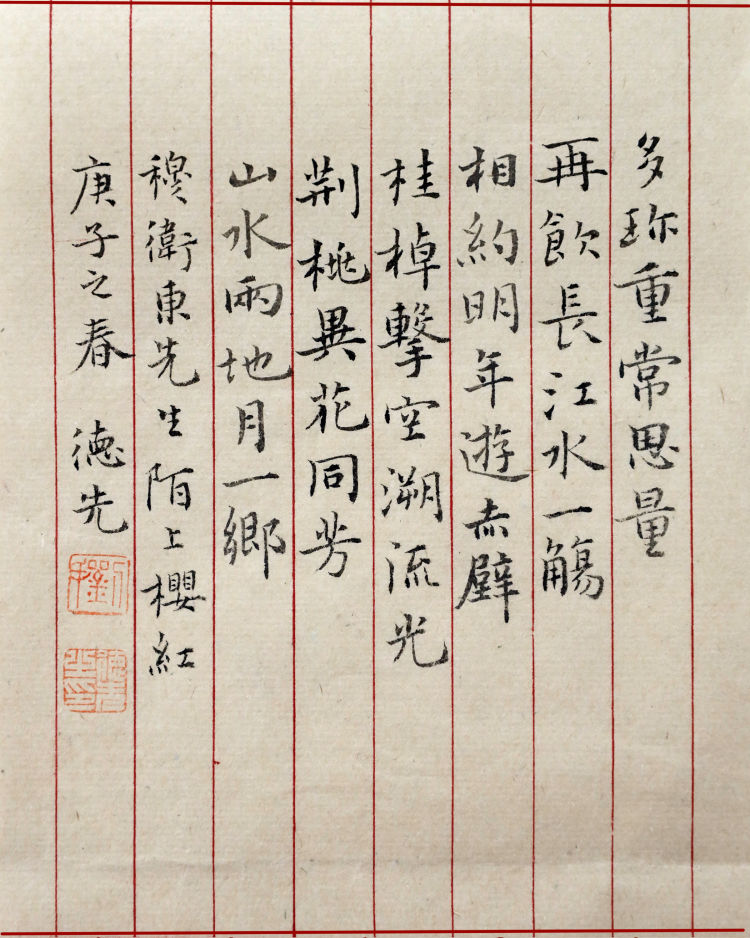 多珎重常思量
再飲長江水一觴
相約明年遊赤壁
桂棹擊空溯流光
荆桃異花同芳
山水兩地月一鄉
穆衛東先生陌上櫻紅
庚子之春 德先